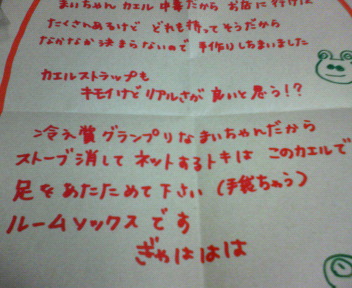 まいちゃん カエル中毒だから お店に行けば
たくさんあるけど どれも持ってそうだから
なかなか決まらないので 手作りしちまいました
カエルストラップも
キモイけどリアルさが 良いと思う!?
冷え賞グランプリなまいちゃんだから
ストーブ消して ネットするトキは このカエルで
足をあたためて下さい (手袋ちゃう)
ルームソックスです
ぎゃははは